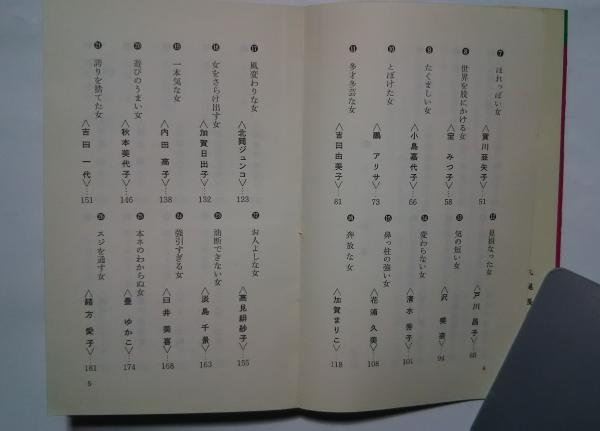 ❼ ほれっぽい女
〈賀川亜矢子〉…51
❽ 世界を股にかける女
〈宝 みつ子〉…58
❾ たくましい女
〈小島嘉代子〉…66
❿ とぼけた女
〈鵬 アリサ〉…73
⓫ 多才多芸な女
〈吉田由美子〉…81
⓬ 見損なった女
〈戸川 昌子〉…88
⓭ 気の短い女
〈沢 美奈〉…94
⓮ 変わらない女
〈清水秀子〉…101
⓯ 鼻っ柱の強い女
〈花浦久美〉…108
⓰ 奔放な女
〈加賀まりこ〉…118
⓱ 風変わりな女
〈北岡ジュンコ〉…123
⓲ 女をさらけ出す女
〈加賀日出子〉…132
⓳ 一本気な女
〈内田 高子〉…138
⓴ 遊びのうまい女
〈秋本美代子〉…146
㉑ 誇りを捨てた女
〈吉田 一代〉…151
㉒ お人よしな女
〈高見緋紗子〉…155
㉓ 油断できない女
〈淡島 千景〉…163
㉔ 強引すぎる女
〈臼井 美喜〉…168
㉕ 本ネのわからぬ女
〈豊 ゆかこ〉…174
㉖ スジを通す女
〈緒方 愛子〉…181
5